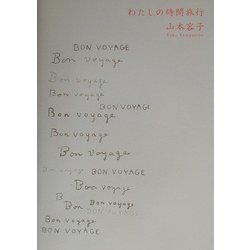 わたしの時間旅行
山本容子
Yoko Yamamoto
BON VOYAGE
Bon voyage
Bon voyage
Bon voyage
BON VOYAGE
Bon voyage
Bon voyage
Bon voyage
BON VOYAGE
Bon voyage
Bon voyage
B Bon voyage
Bon BON VOYAGE
Bon voyage
BON VOYAGE